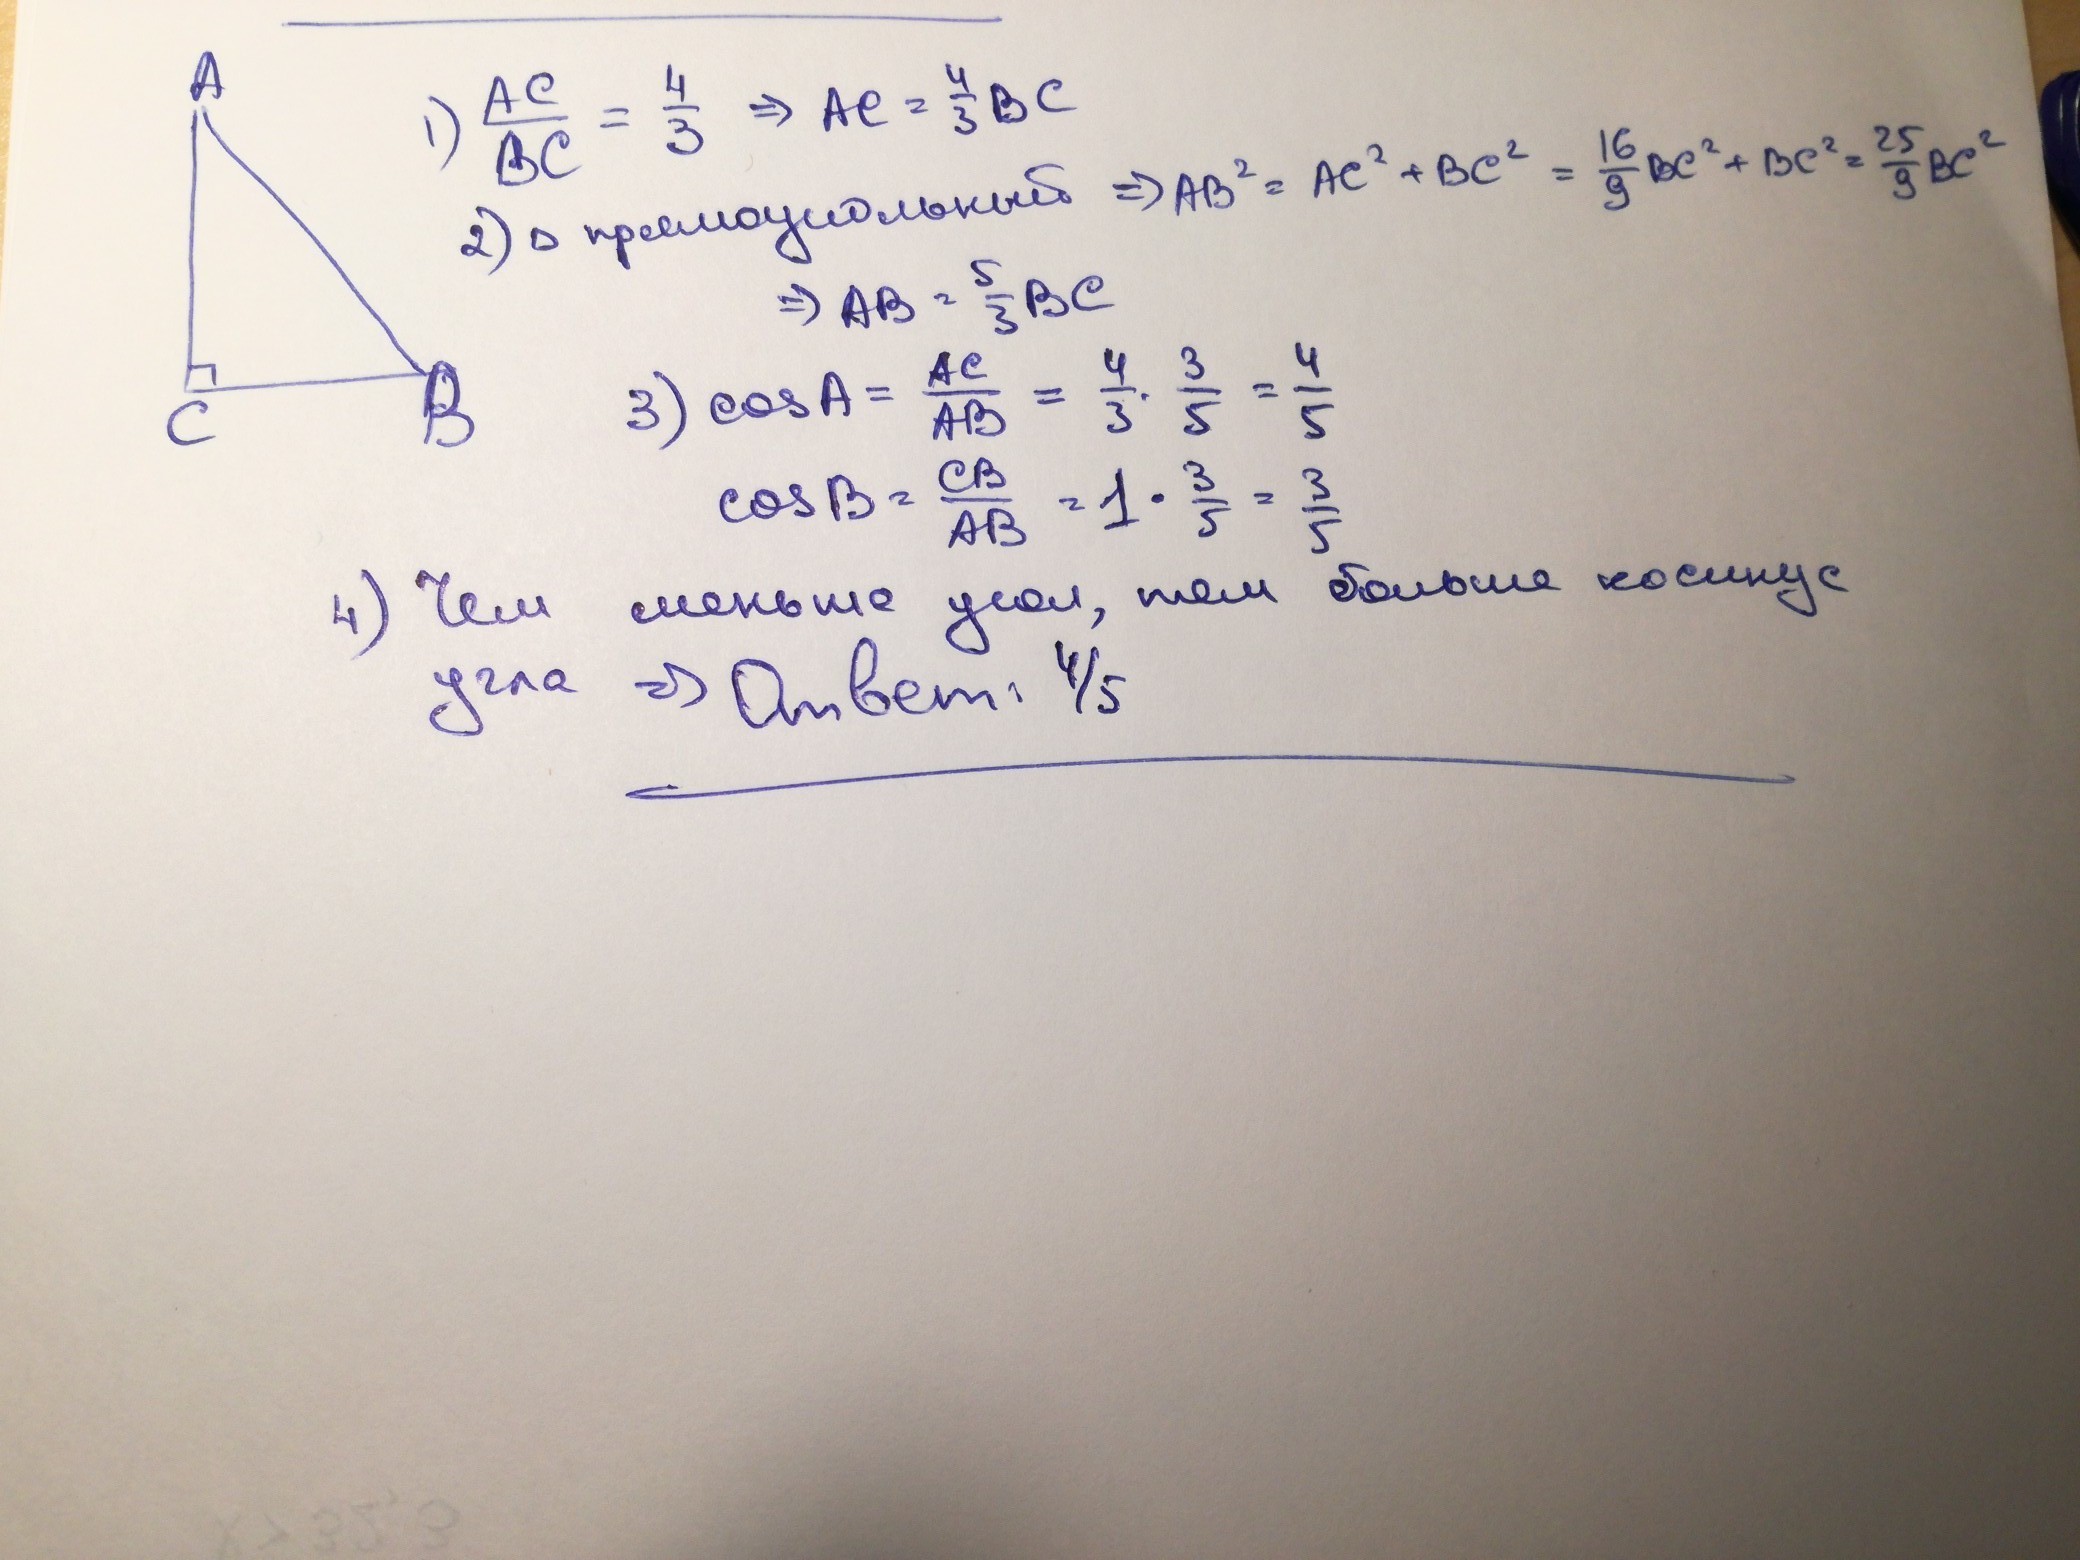 A
C
B
1) AC/BC = 4/3 => AC = 4/3 BC
2) △ прямоугольный => AB² = AC² + BC² = 16/9 BC² + BC² = 25/9 BC²
=> AB = 5/3 BC
3) cosA = AC/AB = 4/3 · 3/5 = 4/5
cosB = CB/AB = 1 · 3/5 = 3/5
4) Чем меньше угол, тем больше косинус
угла => Ответ: 4/5